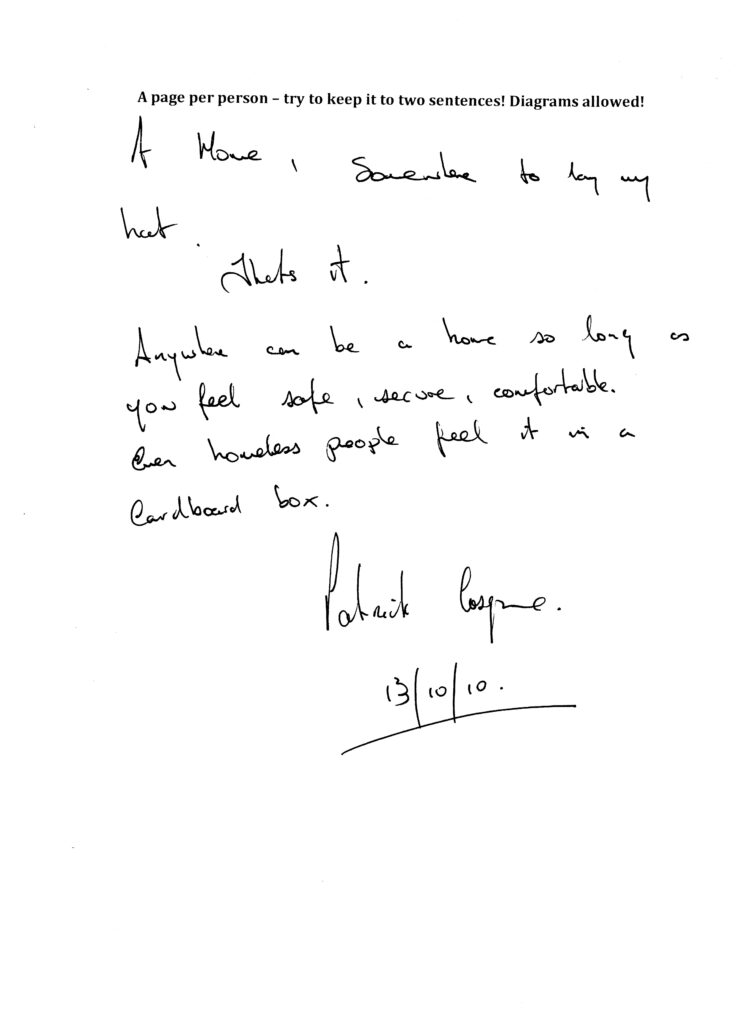 A page per person – try to keep it to two sentences! Diagrams allowed!
A Home, Somewhere to lay my
hat.
Thats it.
Anywhere can be a home so long as
you feel safe, secure, comfortable.
Even homeless people feel it in a
Cardboard box.
Patrick
13/10/10.